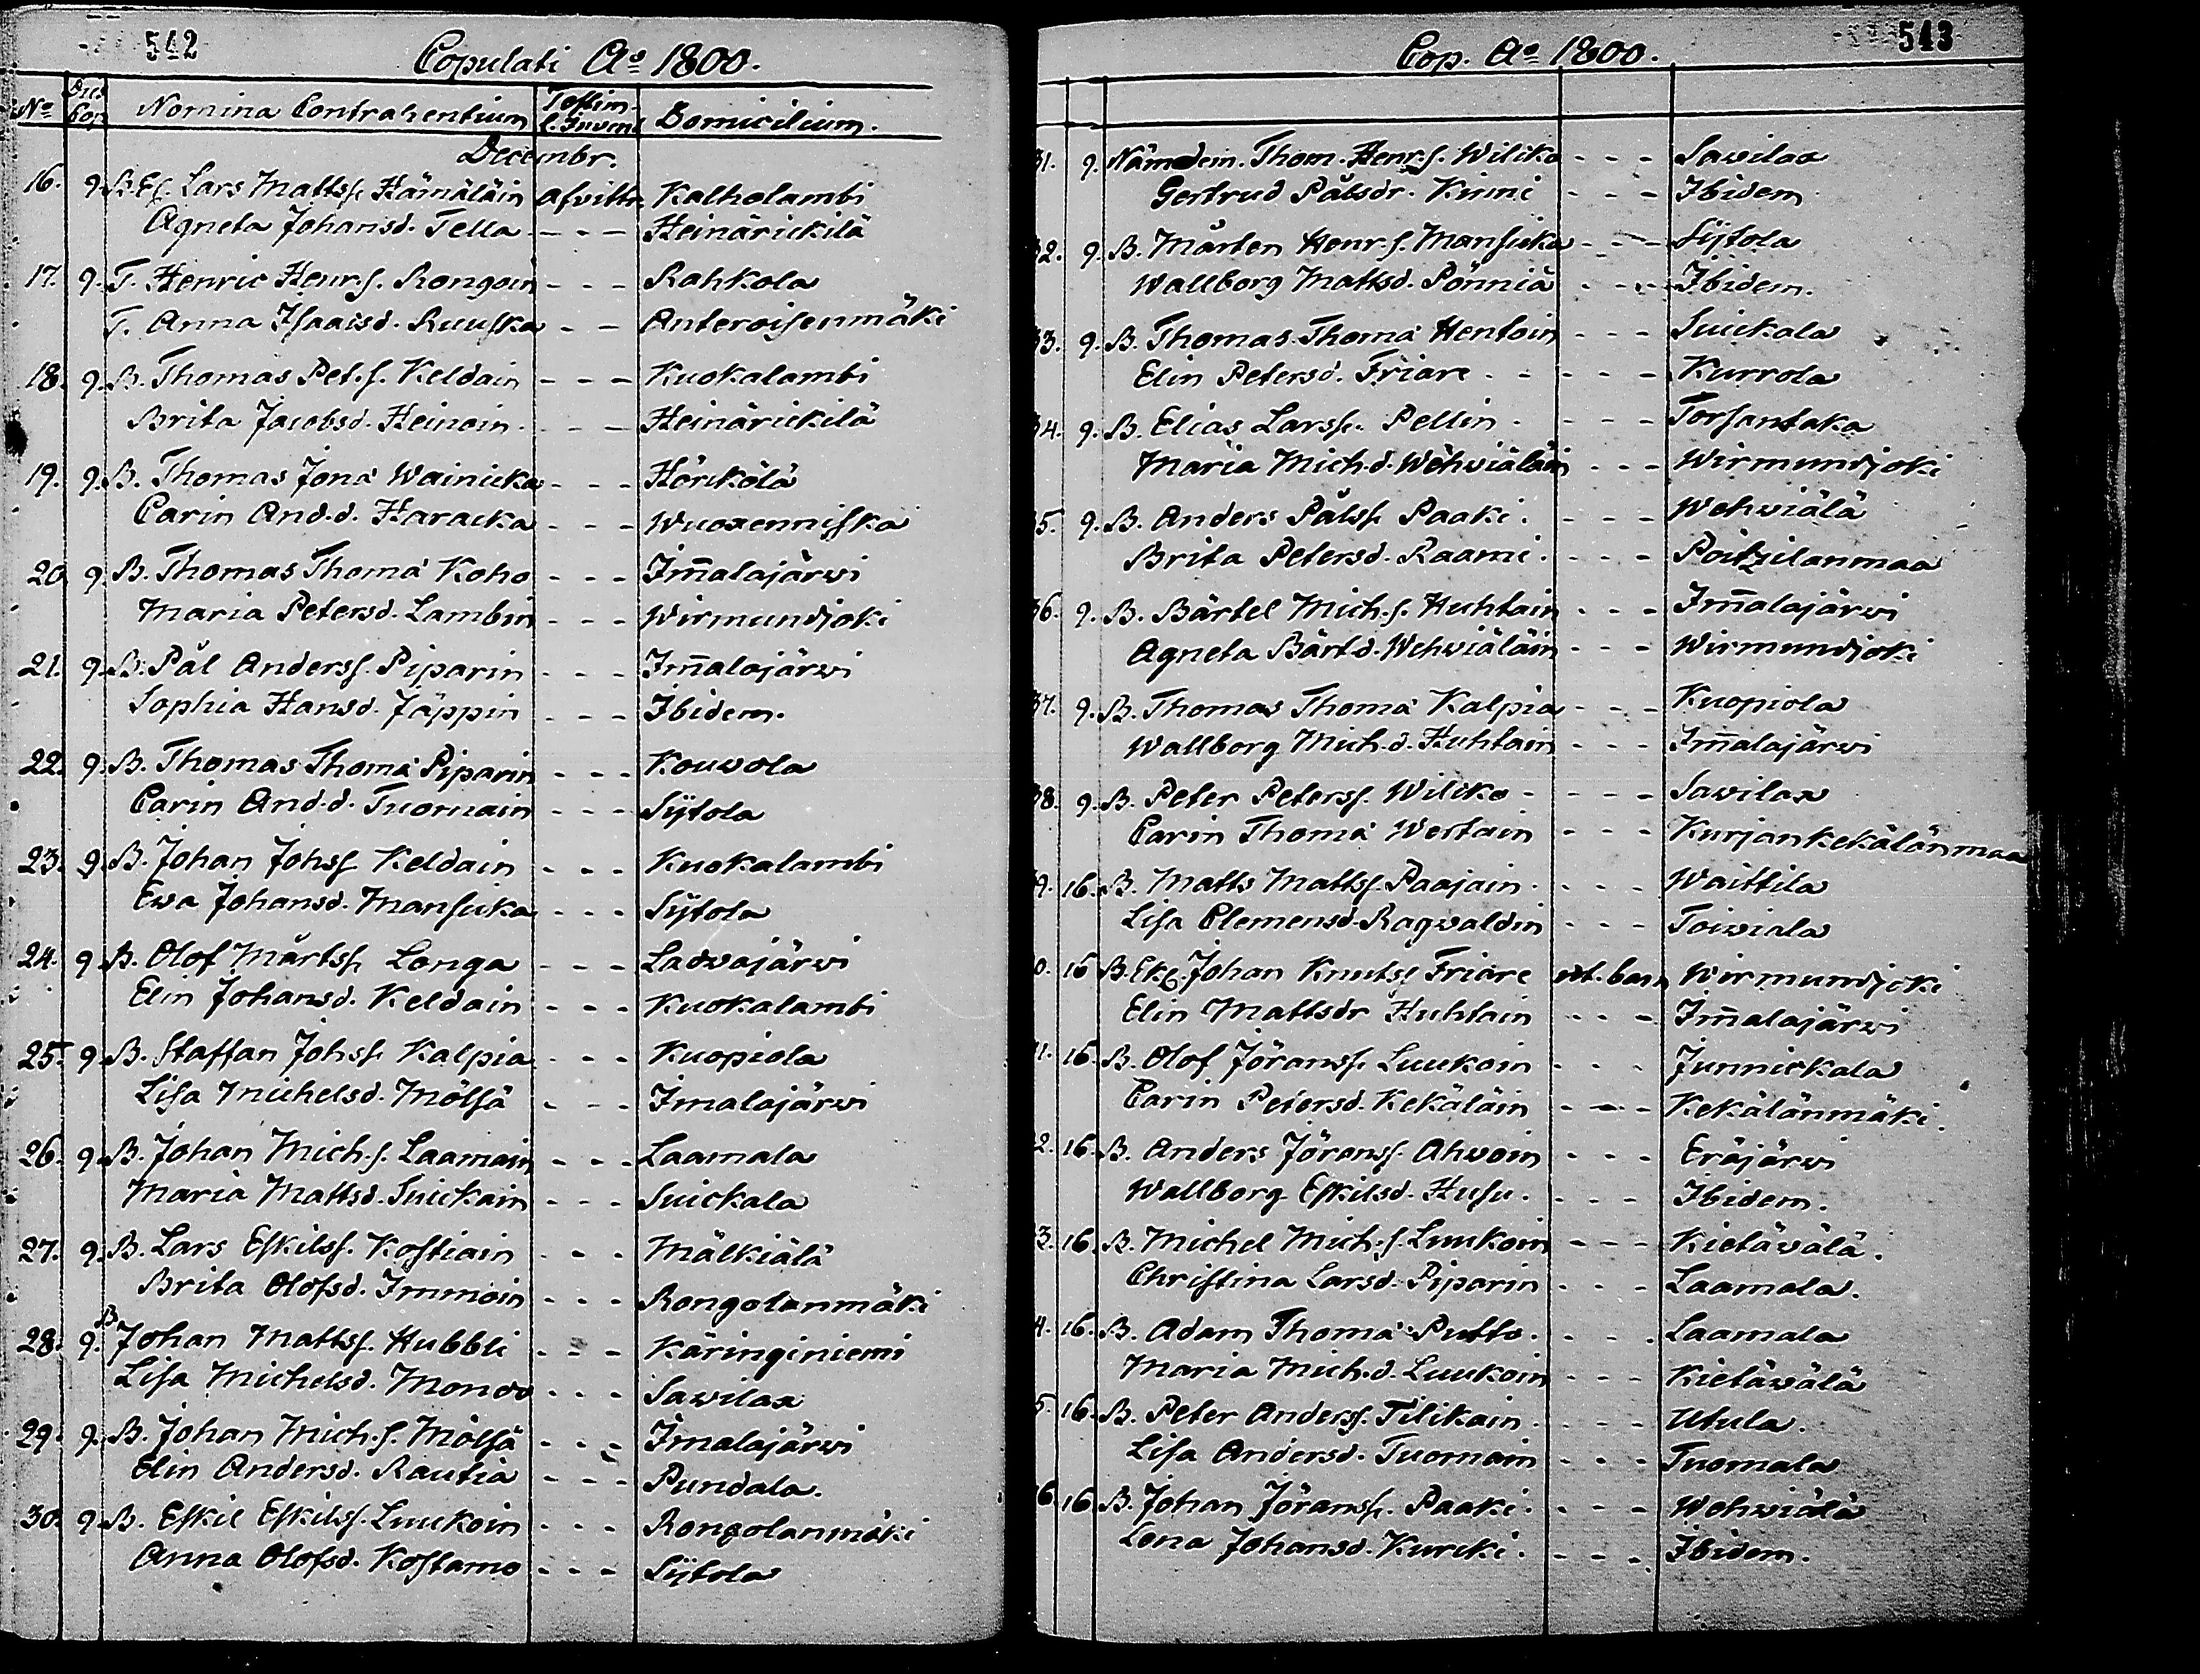 542
Copulati Ao 1800.
No Dies Cop Nomina Contrahentium Testim. Domicilium.
Decembr.
16. 9. Lars Mattss. Hämäläin Afvittr Kalholambi
Agneta Johansd. Tella - - - Heinärickilä
17. 9. T. Henric Henr.s. Rongoin - - - Rahkola
T. Anna Isaacsd. Ruuska - - Anteroisenmäki
18. 9. B. Thomas Pet.s. Keldain - - - Kuokalambi
Brita Jacobsd. Heinoin - - - Heinärickilä
19. 9. B. Thomas Jonæ Wainicka - - - Hörckölä
Carin And.d. Haracka - - - Wuoxenniska
20. 9. B. Thomas Thomæ Koho - - - Im̄alajärwi
Maria Petersd. Lambin - - - Wirmundjoki
21. 9. B. Pål Anderss. Piparin - - - Im̄alajärwi
Sophia Hansd. Jäppin - - - Ibidem.
22. 9. B. Thomas Thomæ Piparin - - - Kouwola
Carin And.d. Tuomain - - - Sijtola
23. 9. B. Johan Johss. Keldain - - - Kuokalambi
Ewa Johansd. Mansicka - - - Sijtola
24. 9. B. Olof Mårtss. Longa - - - Ladwajärwi
Elin Johansd. Keldain - - - Kuokalambi
25. 9. B. Staffan Johss. Kalpia - - - Kuopiola
Lisa Michelsd. Mölsä - - - Imalajärwi
26. 9. B. Johan Mich.s. Laamain - - - Laamala
Maria Mattsd. Suickain - - - Suickala
27. 9. B. Lars Eskilss. Kostiain - - - Mälkiälä
Brita Olofsd. Immoin - - - Rongolanmäki
28. 9. B Johan Mattss. Hubbli - - - Käringiniemi
Lisa Michelsd. Mondo - - - Sawilax
29. 9. B. Johan Mich.s. Mölsä - - - Imalajärwi
Elin Andersd. Rautia - - - Pundala.
30. 9. B. Eskil Eskilss. Luukoin - - - Rongolanmäki
Anna Olofsd. Kostamo - - - Sijtola
543
Cop. Ao 1800.
31. 9. Nämdem. Thom. Henr.s. Wilika - - - Sawilax
Gertrud Pålsdr. Kinni - - - Ibidem
32. 9. B. Mårten Henr.s. Mansicka - - - Sijtola
Wallborg Mattsd. Pönniä - - - Ibidem.
33. 9. B. Thomas Thomæ Hentoin - - - Suickala
Elin Petersd. Friare - - - Kurrola
34. 9. B. Elias Larss. Pellin - - - Torsantaka
Maria Mich.d. Wehwiäläin - - - Wirmundjoki
35. 9. B. Anders Pålss. Paaki - - - Wehwiälä
Brita Petersd. Raami - - - Poitzilanmaa
36. 9. B. Bärtel Mich.s. Huhtain - - - Im̄alajärwi
Agneta Bärt.d. Wehwiäläin - - - Wirmundjoki
37. 9. B. Thomas Thomæ Kalpia - - - Kuopiola
Wallborg Mich.d. Huhtain - - - Im̄alajärwi
38. 9. B. Peter Peterss. Wiliko - - - Sawilax
Carin Thomæ Westain - - - Kurjankekälänmaa
9. 16. B. Matts Mattss. Paajain - - - Waittila
Lisa Clemensd. Ragwaldin - - - Toiwiala
0. 16 B. Johan Knutss. Friare Wirmundjoki
Elin Mattsdr Huhtain - - - Im̄alajärwi
1. 16. B. Olof Jöranss. Luukoin - - - Junnickala
Carin Petersd. Kekäläin - - - Kekälänmäki.
2. 16. B. Anders Jöranss. Ahwoin - - - Eräjärwi
Wallborg Eskilsd. Husu - - - Ibidem.
3. 16. B. Michel Mich.s. Luukoin - - - Kietäwälä.
Christina Larsd. Piparin - - - Laamala.
4. 16. B. Adam Thomæ Putto - - - Laamala
Maria Mich.d. Luukoin - - - Kietäwälä
5. 16. B. Peter Anderss. Tilikain - - - Utula.
Lisa Andersd. Tuomain - - - Tuomala
6. 16 B. Johan Jöranss. Paaki - - - Wehwiälä
Lena Johansd. Kurcki - - - Ibidem.